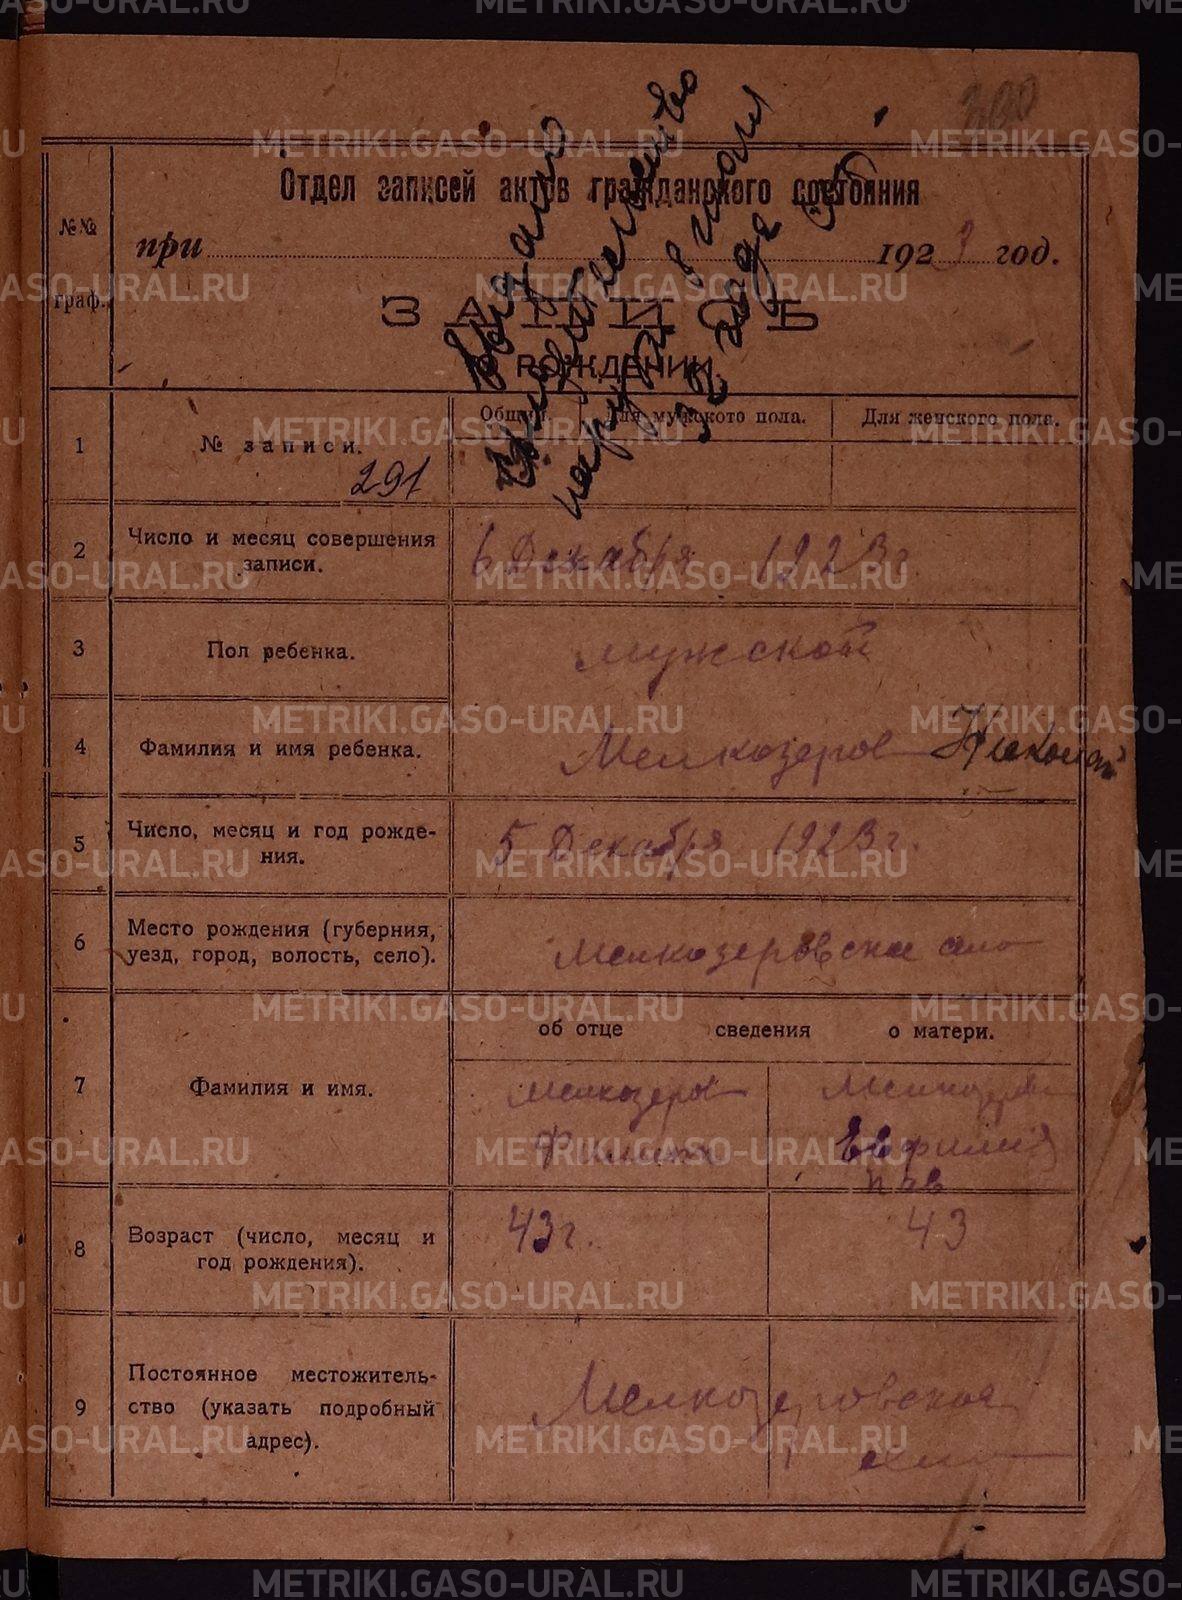 300
Отдел записей актов гражданского состояния
№№ граф.
при 1923 год.
ЗАПИСЬ
О РОЖДЕНИИ.
Выдано
свидетельство
в июля
Общий. Для мужского пола. Для женского пола.
1 № записи. 291
2 Число и месяц совершения записи. 6 Декабря 1923 г.
3 Пол ребенка. мужской
4 Фамилия и имя ребенка. Мелкозеров Николай
5 Число, месяц и год рожде-
ния. 5 Декабря 1923 г.
6 Место рождения (губерния,
уезд, город, волость, село). Мелкозеровское село
об отце сведения о матери.
7 Фамилия и имя. Мелкозеров Мелкозерова
Филипп Евфилия
8 Возраст (число, месяц и
год рождения). 43 г. 43
9 Постоянное местожитель-
ство (указать подробный
адрес). Мелкозеровское
село
METRIKI.GASO-URAL.RU